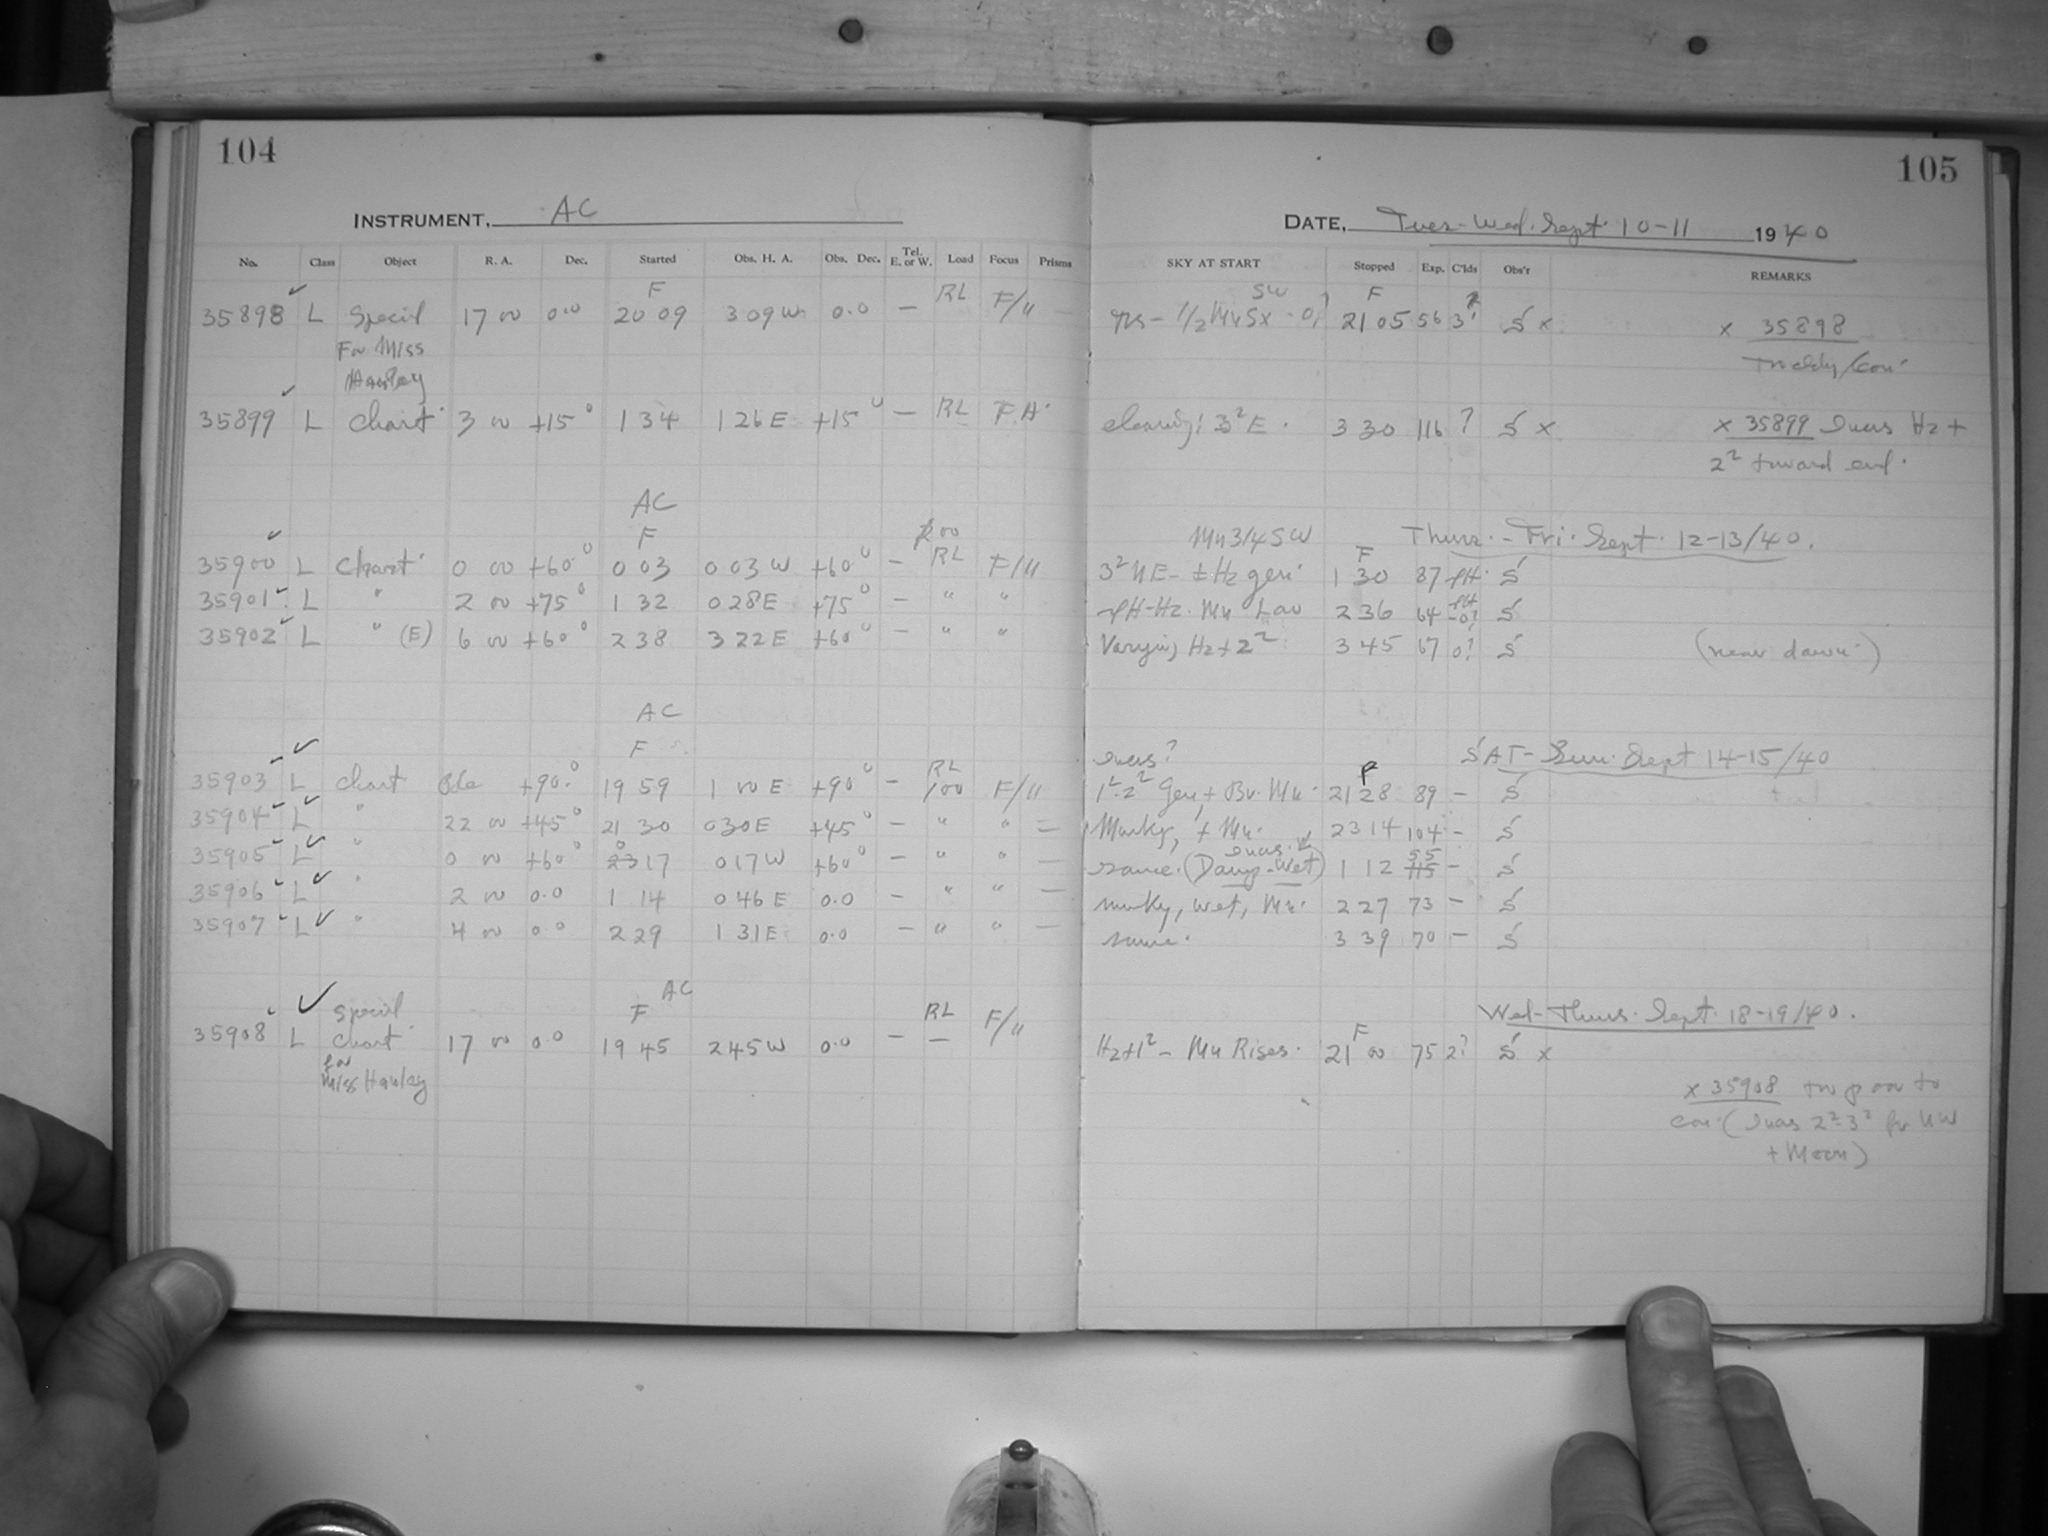 104
INSTRUMENT, AC
No. Class Object R. A. Dec. Started Obs. H. A. Obs. Dec. Tel. E. or W. Load Focus Prisms
F RL
35898 L Special 17 00 0.0 20 09 3 09 W 0.0 — F/11
For Miss
Hanley
35899 L Chart 3 00 +15° 1 34 1 26 E +15° — RL F.A.
AC
F
35900 L Chart 0 00 +60° 0 03 0 03 W +60° — RL F/11
35901 L " 2 00 +75° 1 32 0 28 E +75° — " "
35902 L " (E) 6 00 +60° 2 38 3 22 E +60° — " "
AC
F RL
35903 L Chart Pole +90.° 19 59 1 00 E +90° — 100 F/11
35904 L " 22 00 +45° 21 30 0 30 E +45° — " " —
35905 L " 0 00 +60° 0 17 0 17 W +60° — " " —
35906 L " 2 00 0.0 1 14 0 46 E 0.0 — " " —
35907 L " 4 00 0.0 2 29 1 31 E 0.0 — " " —
AC
Special F RL
35908 L Chart 17 00 0.0 19 45 2 45 W 0.0 — — F/11
for
Miss Hanley
105
DATE, Tues-Wed. Sept. 10-11 1940
SKY AT START Stopped Exp. C'lds Obs'r REMARKS
SW F
21 05 56 3? S x x 35898
clearing; 3² E. 3 30 116 ? S x x 35899 Hz +
2² toward end.
Mn 3/4 SW Thurs.-Fri. Sept. 12-13/40.
F
3² NE - ± Hz gen. 1 30 87 S
Hz. Mn Low 2 36 64 S
Varying Hz + 2² 3 45 67 0? S (near dawn.)
SAT-Sun. Sept 14-15/40
F
1²-2² Gen, + Br. Mn. 21 28 89 — S
Murky, + Mn. 23 14 104 — S
same. (Damp-Wet) 1 12 55 — S
murky, wet, Mn. 2 27 73 — S
same. 3 39 70 — S
Wed-Thurs. Sept. 18-19/40.
F
Hz+1² - Mn Rises. 21 00 75 2? S x
x 35908 too poor to
2²-3² NW
+ Moon)